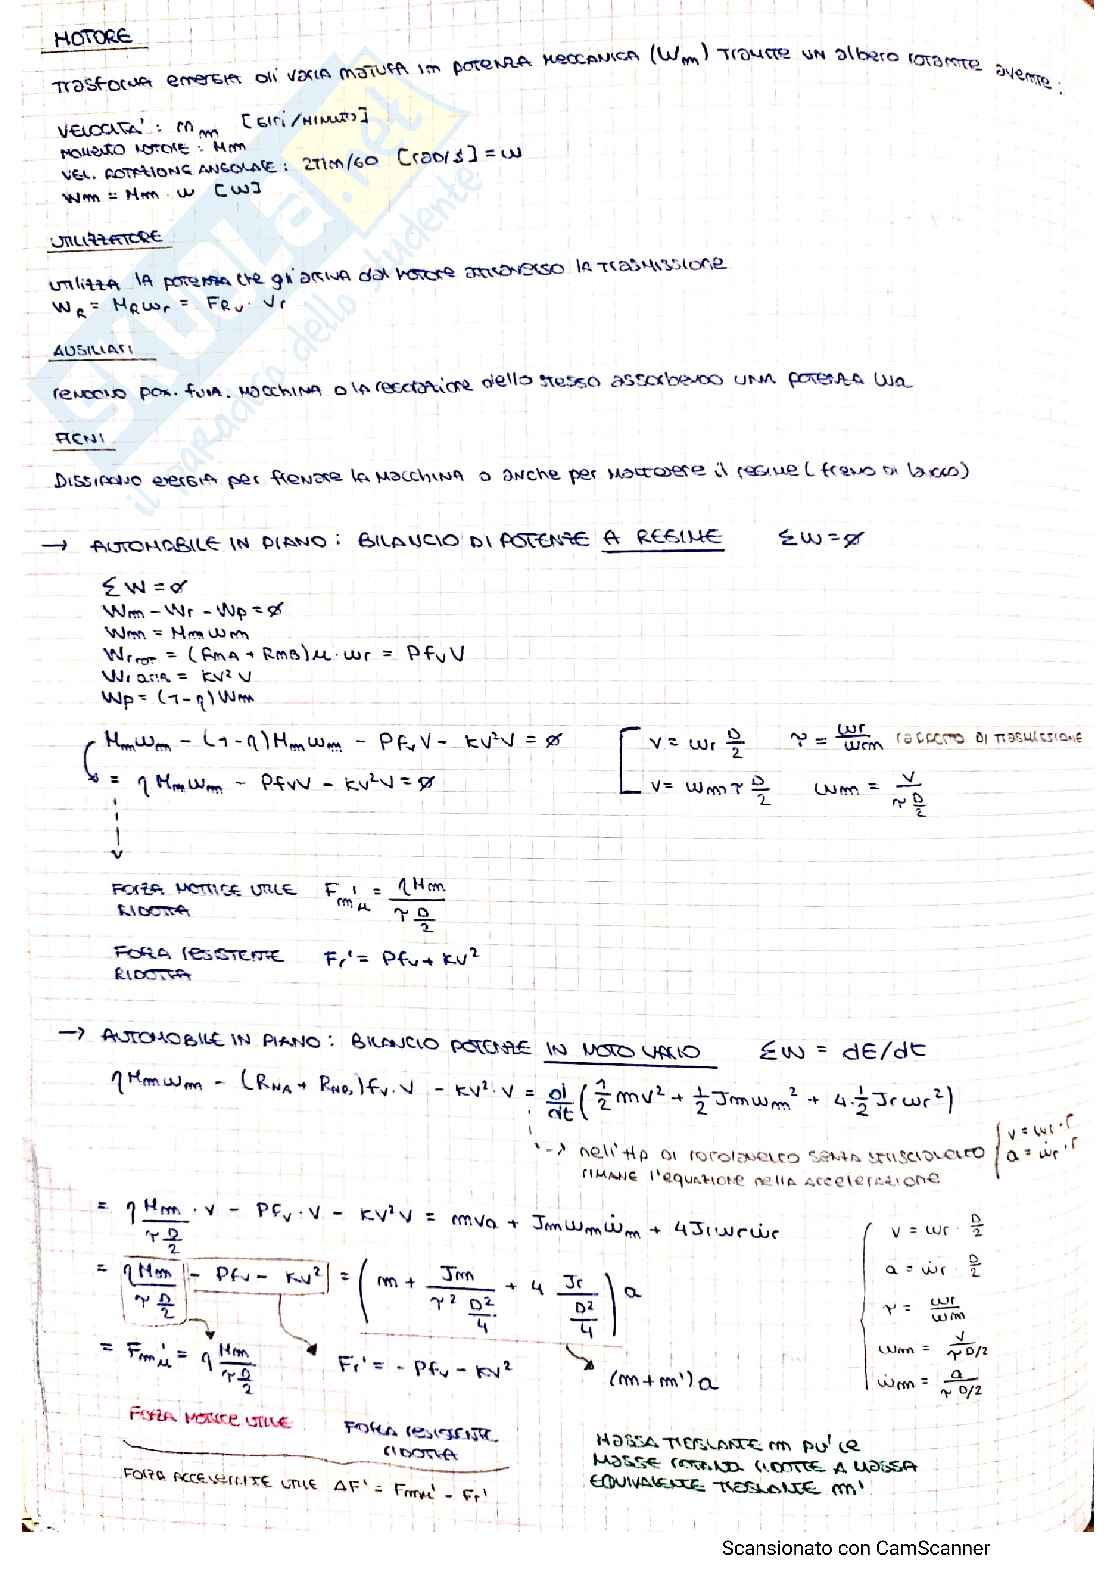 MOTORE
TRASFORMA ENERGIA DI VARIA NATURA IN POTENZA MECCANICA (Wm) TRAMITE UN ALBERO ROTANTE AVENTE:
VELOCITA': nm [GIRI/MINUTO]
MOMENTO MOTORE: Mm
VEL. ROTAZIONE ANGOLARE: 2πn/60 [rad/s] = ω
Wm = Mm · ω [W]
UTILIZZATORE
UTILIZZA LA POTENZA CHE gli ARRIVA dal MOTORE ATTRAVERSO LA TRASMISSIONE
WR = MRωr = FRv · Vr
AUSILIARI
RENDONO POS. FUNZ. MACCHINA O LA REGOLAZIONE dello STESSO ASSORBENDO UNA POTENZA Wa
FRENI
DISSIPANO ENERGIA per FRENARE LA MACCHINA o anche per MANTENERE il REGIME (FRENO DI BLOCCO)
→ AUTOMOBILE IN PIANO: BILANCIO DI POTENZE A REGIME ΣW = ∅
ΣW = ∅
Wm - Wr - Wp = ∅
Wm = Mmωm
Wrrot = (RMA + RMB)μ · ωr = PfvV
Wraria = KV² V
Wp = (1-η)Wm
Mmωm - (1-η)Mmωm - PfvV - KV²V = ∅
v = ωr D/2 τ = ωr/ωm RAPPORTO DI TRASMISSIONE
= ηMmωm - PfvV - KV²V = ∅
v = ωm τ D/2 ωm = V/(τ D/2)
FORZA MOTRICE UTILE RIDOTTA Fm'u = ηMm/(τ D/2)
FORZA RESISTENTE RIDOTTA Fr' = Pfv + KV²
→ AUTOMOBILE IN PIANO: BILANCIO POTENZE IN MOTO VARIO ΣW = dE/dt
ηMmωm - (RNA + RNB)fv·V - KV²·V = d/dt (1/2 mv² + 1/2 Jmωm² + 4·1/2 Jrωr²)
--> nell'Hp DI ROTOLAMENTO SENZA STRISCIAMENTO { v = ωr·r
a = ω̇r·r
RIMANE l'equazione nella ACCELERAZIONE
= ηMm/(τ D/2) · V - Pfv·V - KV²V = mva + Jmωmω̇m + 4Jrωrω̇r
v = ωr · D/2
a = ω̇r · D/2
= ηMm/(τ D/2) - Pfv - KV² = (m + Jm/(τ² D²/4) + 4 Jr/(D²/4)) a
τ = ωr/ωm
ωm = v/(τ D/2)
ω̇m = a/(τ D/2)
= Fm'u = η Mm/(τ D/2)
Fr' = - Pfv - KV²
(m+m')a
FORZA MOTRICE UTILE
FORZA RESISTENTE RIDOTTA
FORZA ACCELERANTE UTILE ΔF' = Fmu' - Fr'
MASSA TRASLANTE m PIU' LE
MASSE ROTANTI RIDOTTE A MASSA
EQUIVALENTE TRASLANTE m'
SKUOLA.net
il paradiso dello studente
Scansionato con CamScanner